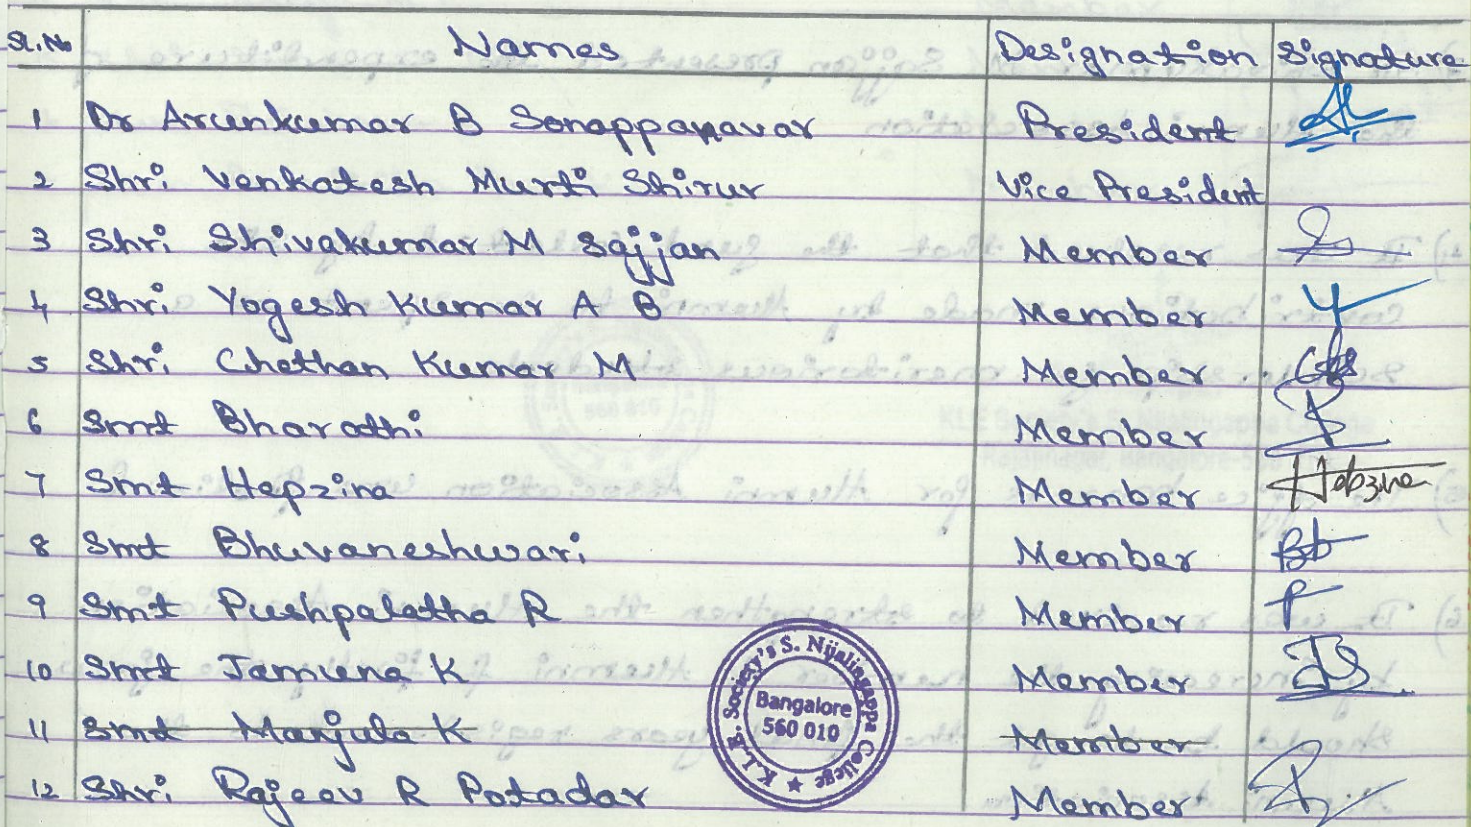 Sl.No Names Designation Signature
1 Dr Arunkumar B Sonappanavar President
2 Shri Venkatesh Murti Shirur Vice President
3 Shri Shivakumar M Sajjan Member
4 Shri Yogesh Kumar A B Member
5 Shri Chethan Kumar M Member
6 Smt Bharathi Member
7 Smt Hepzina Member Hebzine
8 Smt Bhuvaneshwari Member
9 Smt Pushpalatha R Member
10 Smt Jamuna K Member
11 Smt Manjula K Member
12 Shri Rajeev R Potadar Member
K.L.E. Society's S. Nijalingappa College
Bangalore
560 010